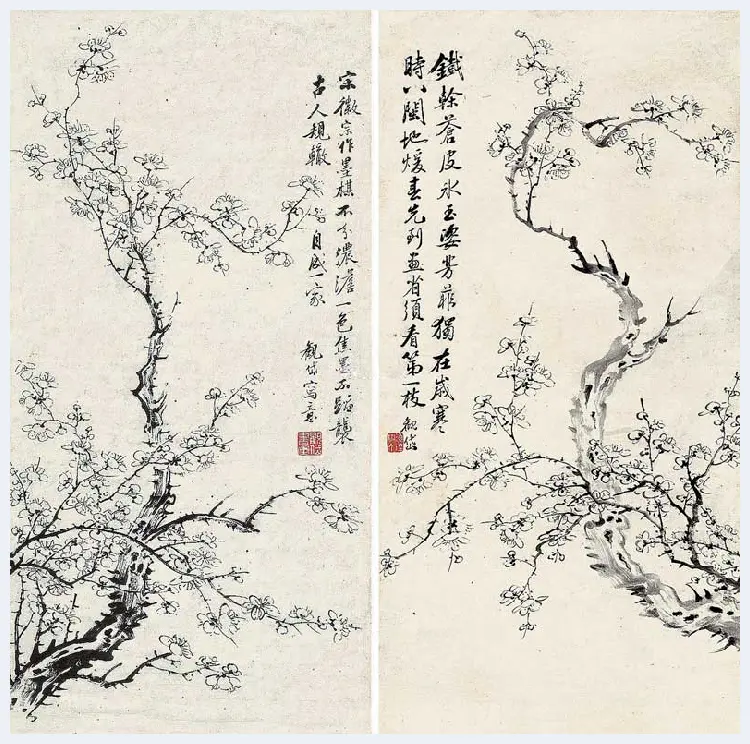 鐵榦蒼皮冰玉姿芳菲獨在歲寒
時八閩地煖春先到畫省須看第一枝
觀岱
宋徽宗作墨楳不分濃澹一色焦墨不蹈襲
古人規轍自成一家
觀岱寫意